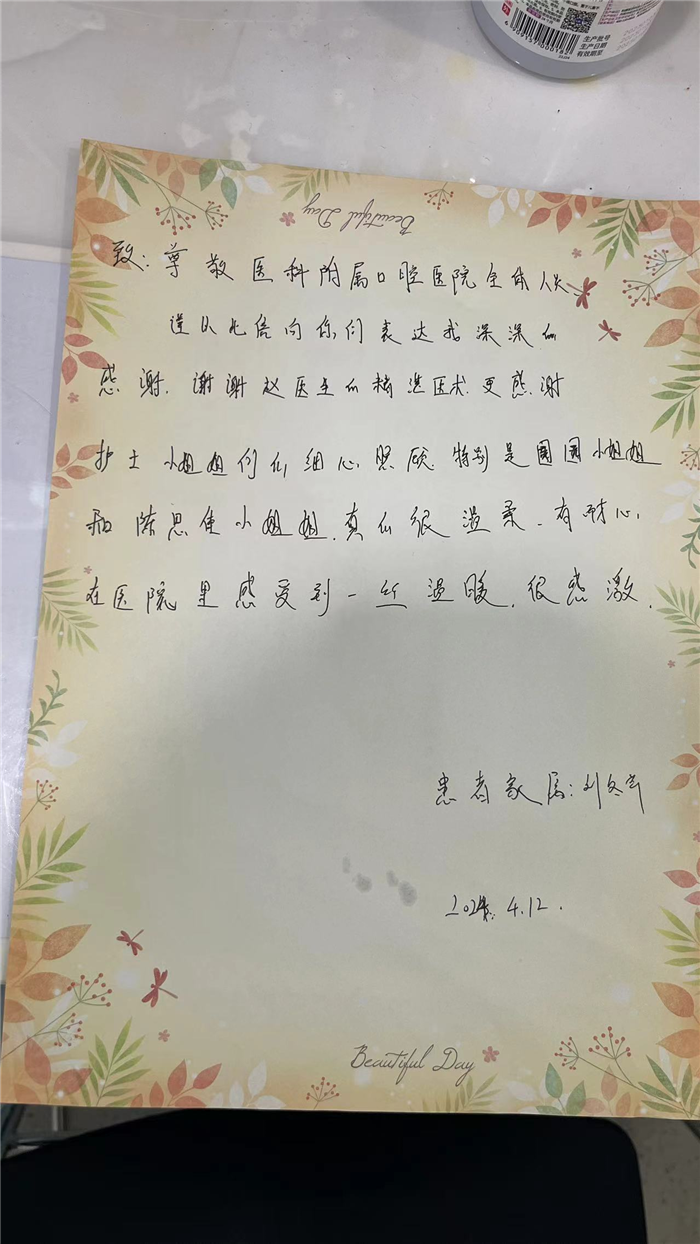 生产批号
生产日期
有效期至
Beautiful Day
致：尊敬医科附属口腔医院全体人员
谨以此信向你们表达我深深的
感谢. 谢谢赵医生的精湛医术. 更感谢
护士小姐姐们的细心照顾. 特别是圆圆小姐姐
和陈思佳小姐姐. 真的很温柔. 有耐心,
在医院里感受到一丝温暖. 很感激.
患者家属：刘冬
2024. 4.12.
Beautiful Day